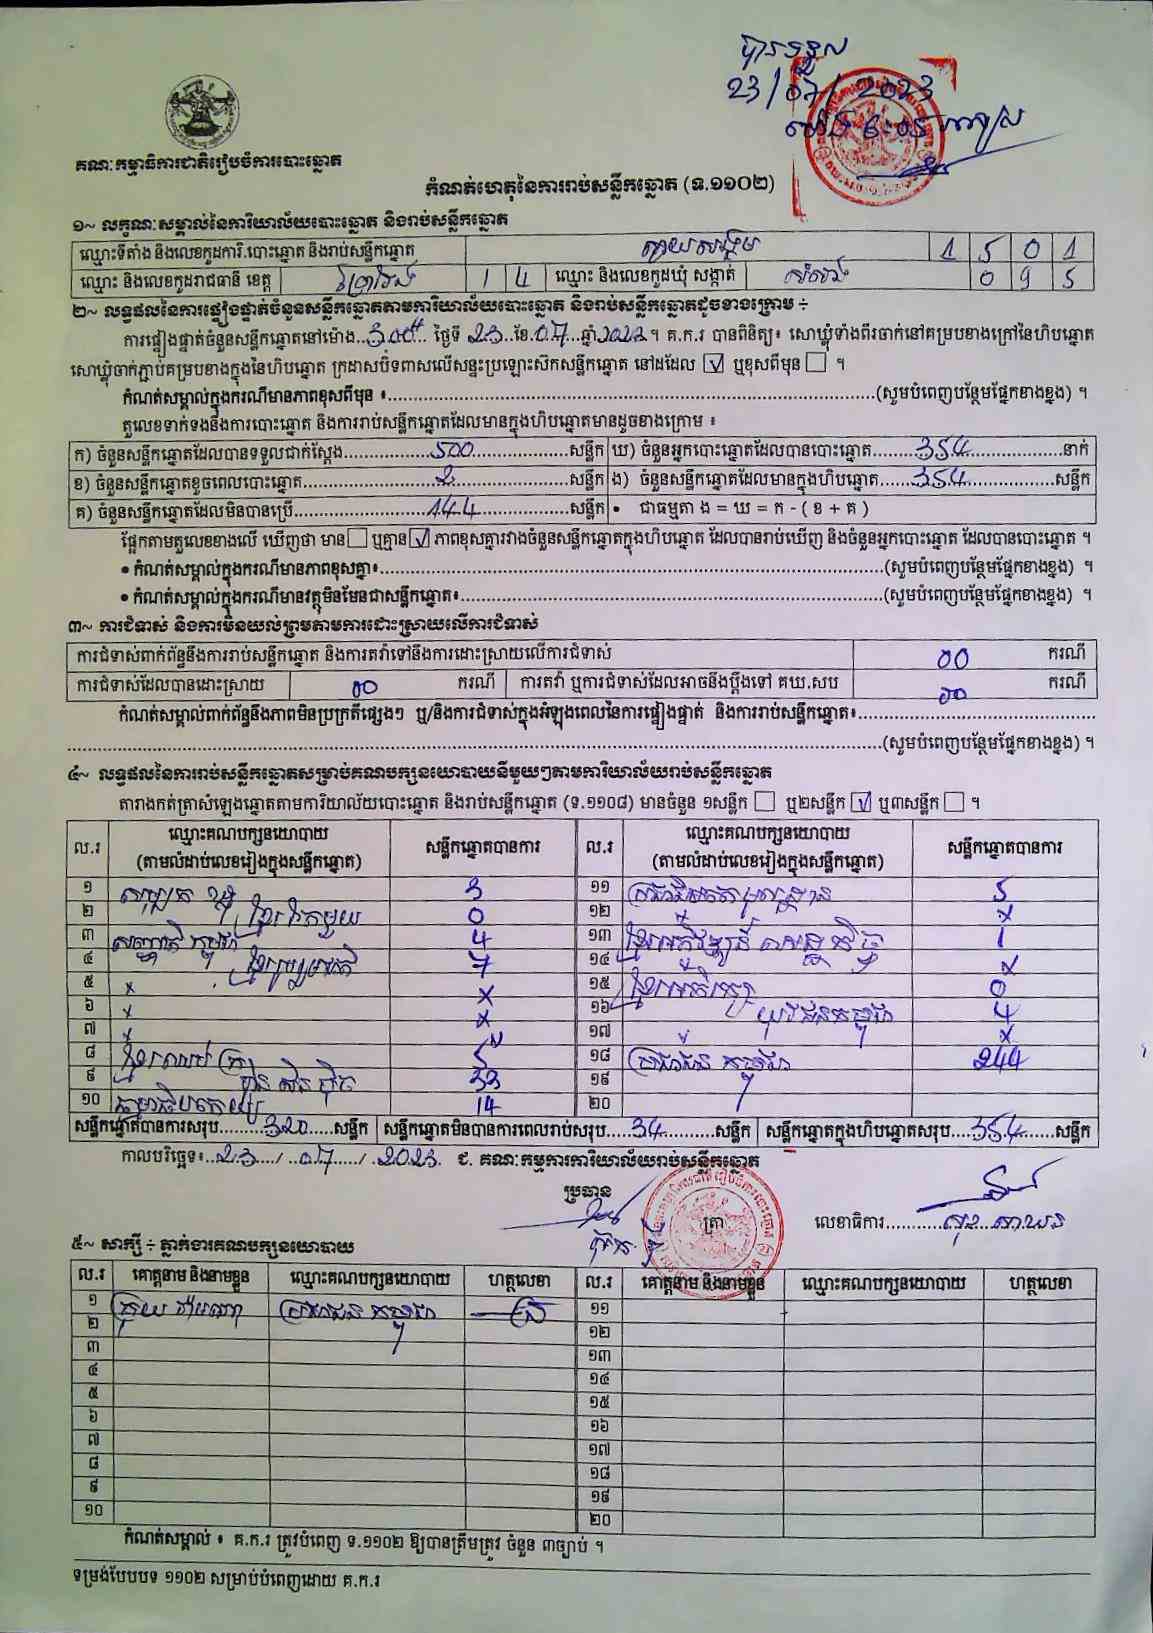 បានទទួល
23/07/2023
គណៈកម្មាធិការជាតិរៀបចំការបោះឆ្នោត
កំណត់ហេតុនៃការរាប់សន្លឹកឆ្នោត (ទ.១១០២)
១~ លក្ខណៈសម្គាល់នៃការិយាល័យបោះឆ្នោត និងរាប់សន្លឹកឆ្នោត
ឈ្មោះទីតាំង និងលេខកូដការិ.បោះឆ្នោត និងរាប់សន្លឹកឆ្នោត 1 5 0 1
ឈ្មោះ និងលេខកូដរាជធានី ខេត្ត ព្រៃវែង 1 4 ឈ្មោះ និងលេខកូដឃុំ សង្កាត់ 0 9 5
២~ លទ្ធផលនៃការផ្ទៀងផ្ទាត់ចំនួនសន្លឹកឆ្នោតតាមការិយាល័យបោះឆ្នោត និងរាប់សន្លឹកឆ្នោតដូចខាងក្រោម ÷
ការផ្ទៀងផ្ទាត់ចំនួនសន្លឹកឆ្នោតនៅម៉ោង..3:00.. ថ្ងៃទី 23..ខែ.07...ឆ្នាំ2023។ គ.ក.រ បានពិនិត្យ៖ សោឃ្លុំទាំងពីរចាក់នៅគម្របខាងក្រៅនៃហិបឆ្នោត
សោឃ្លុំចាក់ភ្ជាប់គម្របខាងក្នុងនៃហិបឆ្នោត ក្រដាសបិទពាសលើសន្ទះប្រឡោះស៊កសន្លឹកឆ្នោត នៅដដែល ☑ ឬខុសពីមុន ☐ ។
កំណត់សម្គាល់ក្នុងករណីមានភាពខុសពីមុន ៖....................(សូមបំពេញបន្ថែមផ្នែកខាងខ្នង) ។
តួលេខទាក់ទងនឹងការបោះឆ្នោត និងការរាប់សន្លឹកឆ្នោតដែលមានក្នុងហិបឆ្នោតមានដូចខាងក្រោម ៖
ក) ចំនួនសន្លឹកឆ្នោតដែលបានទទួលជាក់ស្តែង..........500..........សន្លឹក ឃ) ចំនួនអ្នកបោះឆ្នោតដែលបានបោះឆ្នោត........354..........នាក់
ខ) ចំនួនសន្លឹកឆ្នោតខូចពេលបោះឆ្នោត..........2..........សន្លឹក ង) ចំនួនសន្លឹកឆ្នោតដែលមានក្នុងហិបឆ្នោត......354..........សន្លឹក
គ) ចំនួនសន្លឹកឆ្នោតដែលមិនបានប្រើ..........144..........សន្លឹក • ជាធម្មតា ង = ឃ = ក - ( ខ + គ )
ផ្អែកតាមតួលេខខាងលើ ឃើញថា មាន ☐ ឬគ្មាន ☑ ភាពខុសគ្នារវាងចំនួនសន្លឹកឆ្នោតក្នុងហិបឆ្នោត ដែលបានរាប់ឃើញ និងចំនួនអ្នកបោះឆ្នោត ដែលបានបោះឆ្នោត ។
• កំណត់សម្គាល់ក្នុងករណីមានភាពខុសគ្នា៖....................(សូមបំពេញបន្ថែមផ្នែកខាងខ្នង) ។
• កំណត់សម្គាល់ក្នុងករណីមានវត្ថុមិនមែនជាសន្លឹកឆ្នោត៖....................(សូមបំពេញបន្ថែមផ្នែកខាងខ្នង) ។
៣~ ការជំទាស់ និងការមិនយល់ព្រមតាមការដោះស្រាយលើការជំទាស់
ការជំទាស់ពាក់ព័ន្ធនឹងការរាប់សន្លឹកឆ្នោត និងការតវ៉ាទៅនឹងការដោះស្រាយលើការជំទាស់ 00 ករណី
ការជំទាស់ដែលបានដោះស្រាយ 00 ករណី ការតវ៉ា ឬការជំទាស់ដែលអាចនឹងប្តឹងទៅ គឃ.សប 00 ករណី
កំណត់សម្គាល់ពាក់ព័ន្ធនឹងភាពមិនប្រក្រតីផ្សេងៗ ឬ/និងការជំទាស់ក្នុងអំឡុងពេលនៃការផ្ទៀងផ្ទាត់ និងការរាប់សន្លឹកឆ្នោត៖....................
....................(សូមបំពេញបន្ថែមផ្នែកខាងខ្នង) ។
៤~ លទ្ធផលនៃការរាប់សន្លឹកឆ្នោតសម្រាប់គណបក្សនយោបាយនីមួយៗតាមការិយាល័យរាប់សន្លឹកឆ្នោត
តារាងកត់ត្រាសំឡេងឆ្នោតតាមការិយាល័យបោះឆ្នោត និងរាប់សន្លឹកឆ្នោត (ទ.១១០៨) មានចំនួន ១សន្លឹក ☐ ឬ២សន្លឹក ☑ ឬ៣សន្លឹក ☐ ។
ល.រ ឈ្មោះគណបក្សនយោបាយ (តាមលំដាប់លេខរៀងក្នុងសន្លឹកឆ្នោត) សន្លឹកឆ្នោតបានការ ល.រ ឈ្មោះគណបក្សនយោបាយ (តាមលំដាប់លេខរៀងក្នុងសន្លឹកឆ្នោត) សន្លឹកឆ្នោតបានការ
១ 3 ១១ 5
២ ខ្មែររួបរួម 0 ១២ x
៣ សញ្ជាតិកម្ពុជា 4 ១៣ 1
៤ 7 ១៤ x
៥ x x ១៥ 0
៦ x x ១៦ យុវជនកម្ពុជា 4
៧ x x ១៧ x
៨ 5 ១៨ ប្រជាជនកម្ពុជា 244
៩ 33 ១៩
១០ 14 ២០
សន្លឹកឆ្នោតបានការសរុប........320.....សន្លឹក សន្លឹកឆ្នោតមិនបានការពេលរាប់សរុប....34........សន្លឹក សន្លឹកឆ្នោតក្នុងហិបឆ្នោតសរុប....354......សន្លឹក
កាលបរិច្ឆេទ៖..23..../..07..../..2023. ជ. គណៈកម្មការការិយាល័យរាប់សន្លឹកឆ្នោត
ប្រធាន ត្រា លេខាធិការ....................
៥~ សាក្សី ÷ ភ្នាក់ងារគណបក្សនយោបាយ
ល.រ គោត្តនាម និងនាមខ្លួន ឈ្មោះគណបក្សនយោបាយ ហត្ថលេខា ល.រ គោត្តនាម និងនាមខ្លួន ឈ្មោះគណបក្សនយោបាយ ហត្ថលេខា
១ ប្រជាជនកម្ពុជា ១១
២ ១២
៣ ១៣
៤ ១៤
៥ ១៥
៦ ១៦
៧ ១៧
៨ ១៨
៩ ១៩
១០ ២០
កំណត់សម្គាល់ ៖ គ.ក.រ ត្រូវបំពេញ ទ.១១០២ ឱ្យបានត្រឹមត្រូវ ចំនួន ៣ច្បាប់ ។
ទម្រង់បែបបទ ១១០២ សម្រាប់បំពេញដោយ គ.ក.រ